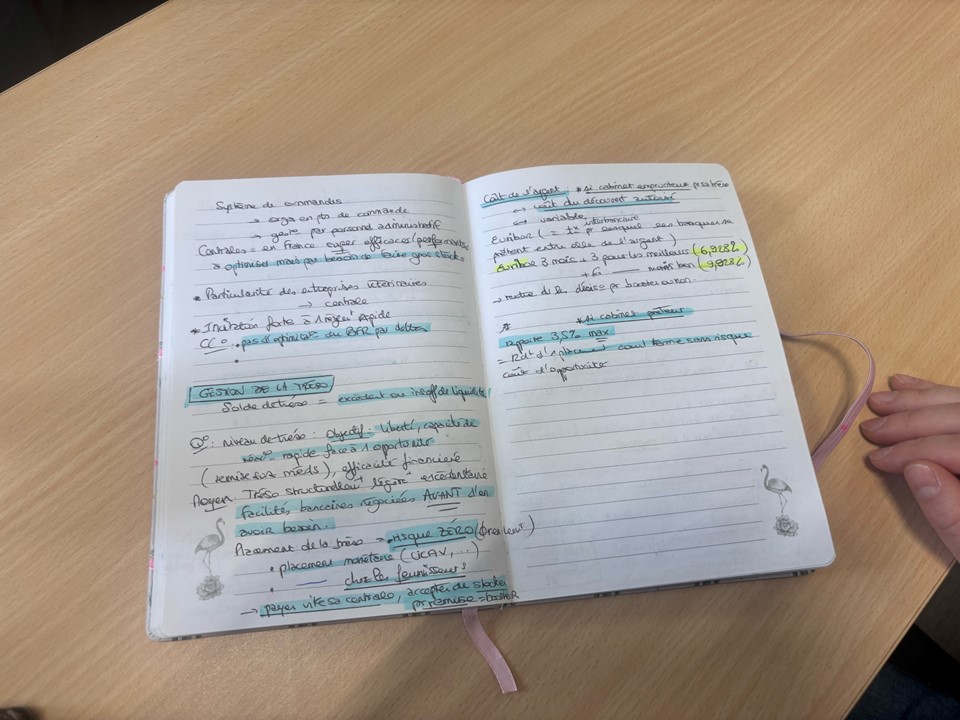 Système de commandes
→ orga en pts de commande
→ gérée par personnel administratif
Centrales = en France super efficaces/performantes
à optimiser mais pas besoin de faire gros stocks
* Particularité des entreprises vétérinaires
→ centrale
* Incitation forte à 1 règlt rapide
CC° • pas d'optimisat° du BFR par dettes
•
GESTION DE LA TRÉSO
Solde de tréso = excédent ou insuff de liquidités
Q° : niveau de tréso : Objectif : liberté, capacité de
réac° rapide face à 1 opportunité
(remise sur méds), efficacité financière
Moyen Tréso structurellemt légèremt excédentaire
facilités bancaires négociées AVANT d'en
avoir besoin.
Placement de la tréso → risque ZÉRO
• placement monétaire (SICAV, ...)
• —— chez les fournisseurs
→ payer vite sa centrale, accepter de stocker
pr remise = booster
Coût de l'argent : * si cabinet emprunteur pr sa tréso
↔ coût du découvert autorisé
↔ variable
Euribor (= tx interbancaire pr lesquel les banques se
prêtent entre elle de l'argent)
Euribor 3 mois + 3 pour les meilleurs (6,928%)
+ 6 —— moins bon (9,928%)
→ mettre di la
*
* si cabinet prêteur
rapporte 3,5% max
= Rdt d'1 placement court terme sans risque
coût d'opportunité